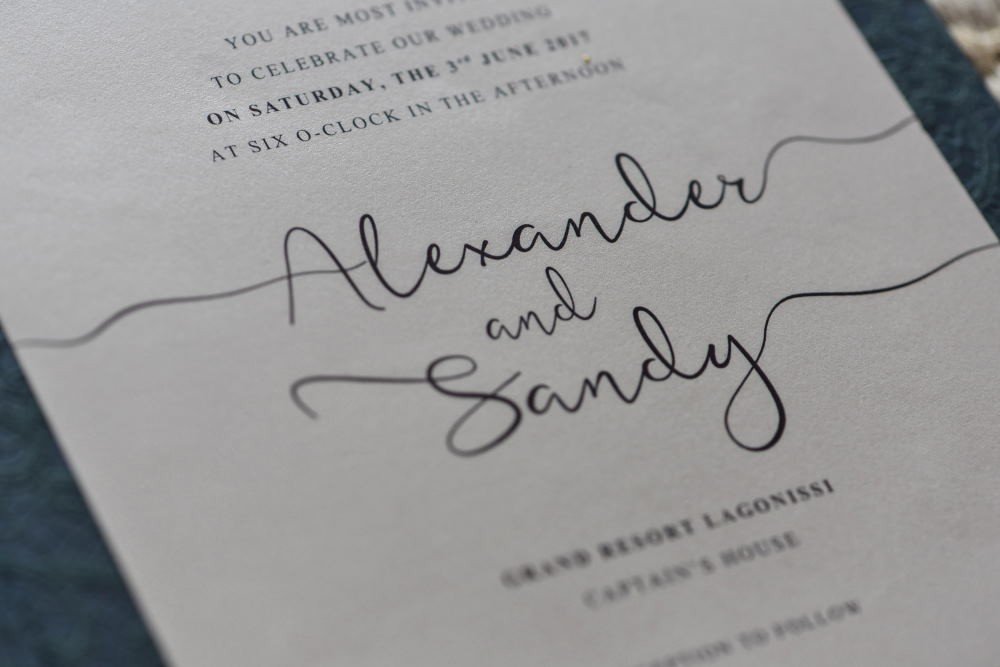 YOU ARE MOST
TO CELEBRATE OUR WEDDING
ON SATURDAY, THE 3rd JUNE 2017
AT SIX O-CLOCK IN THE AFTERNOON
Alexander
and
Sandy
GRAND RESORT LAGONISSI
CAPTAIN'S HOUSE
TO FOLLOW